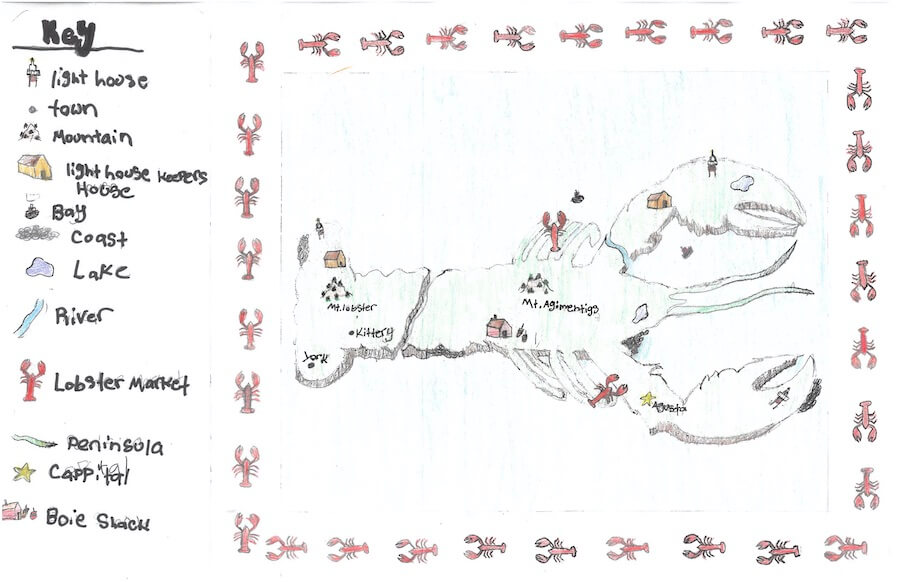 Key
light house
town
Mountain
light house Keepers
House
Bay
Coast
Lake
River
Lobster Market
Peninsula
Cappital
Boie Shack
Mt. lobster
Kittery
York
Mt. Agimentigs
Agusta